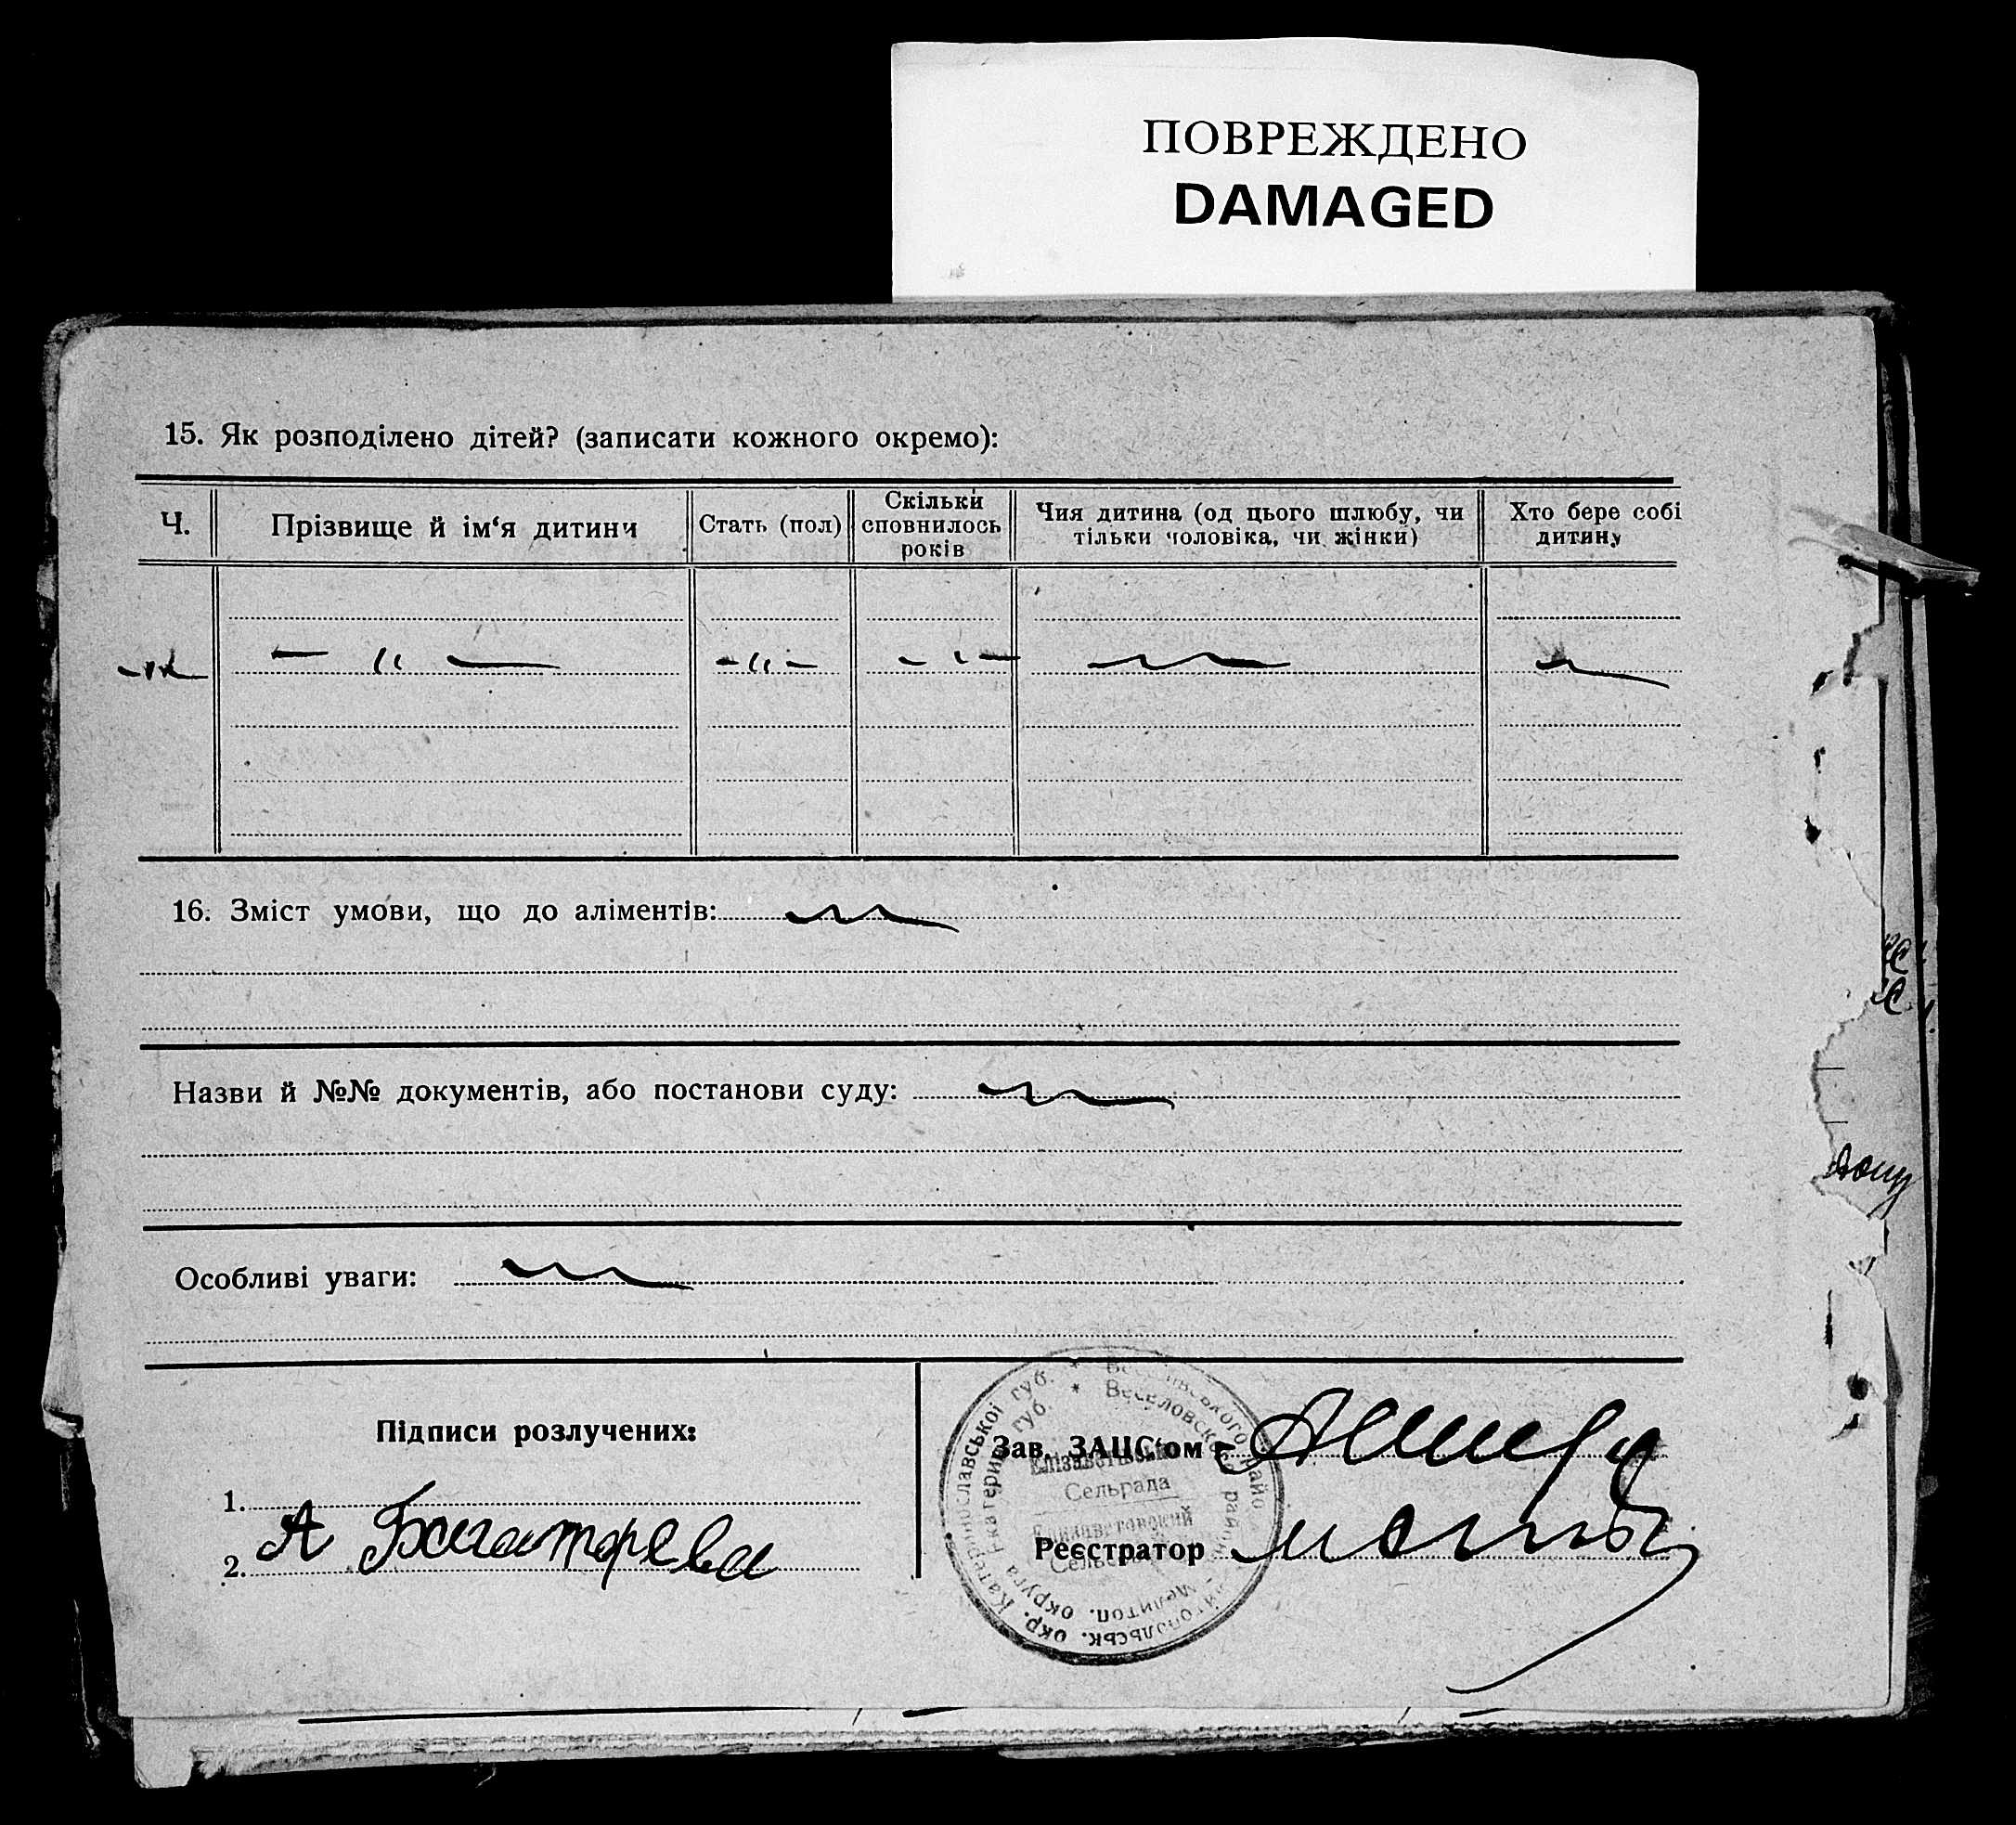 ПОВРЕЖДЕНО
DAMAGED
15. Як розподілено дітей? (записати кожного окремо):
Ч.
Прізвище й ім‘я дитини
Стать (пол)
Скільки сповнилось років
Чия дитина (од цього шлюбу, чи тільки чоловіка, чи жінки)
Хто бере собі дитину
— „ —
- „ -
16. Зміст умови, що до аліментів:
Назви й №№ документів, або постанови суду:
Особливі уваги:
Підписи розлучених:
1.
2. А Богатырева
Зав. ЗАПС‘ом
Реєстратор
Катеринославської губ.
Веселовско
Сельрада
Елизаветовский
Мелитоп. округа Екатерин. губ.